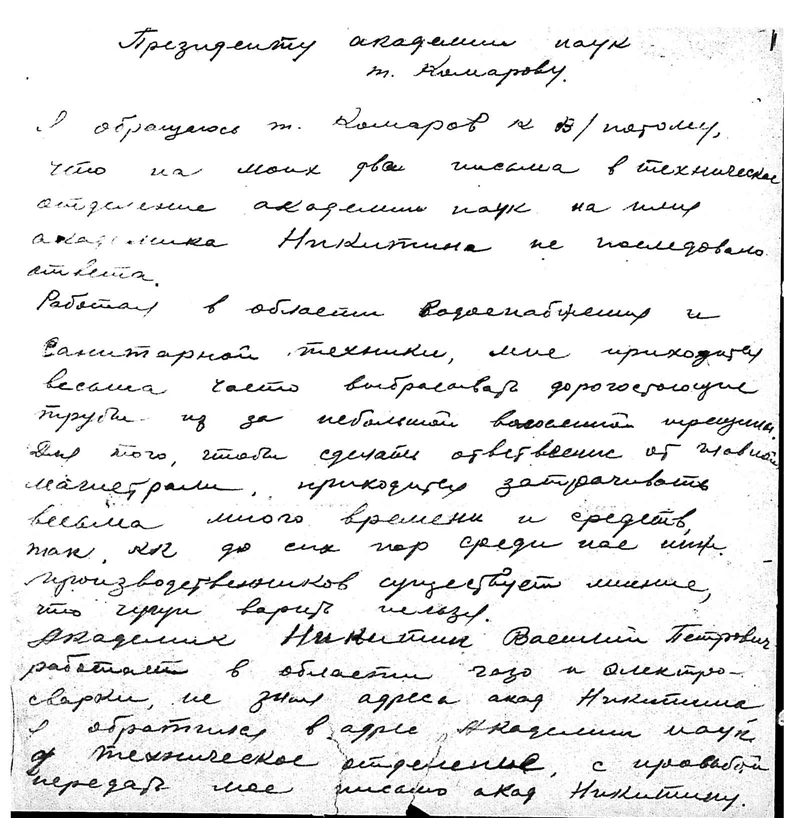 1
Президенту академии наук
т. Комарову.
Я обращаюсь т. Комаров к В/ потому,
что на моих два письма в техническое
отделение академии наук на имя
академика Никитина не последовало
ответа.
Работая в области водоснабжения и
санитарной техники, мне приходится
весьма часто выбрасывать дорогостоющие
трубы из за небольшой волосенной трещины.
Для того, чтобы сделать ответвление от главной
магистрали, приходится затрачивать
весьма много времени и средств,
так, как до сих пор среди нас инж.
производственников существует мнение,
что чугун варить нельзя.
Академик Никитин Василий Петрович
работает в области газо и электро-
сварки, не зная адреса акад Никитина
я обратился в адрес Академии наук
в техническое отделение, с прозьбой
передать мое письмо акад Никитину.